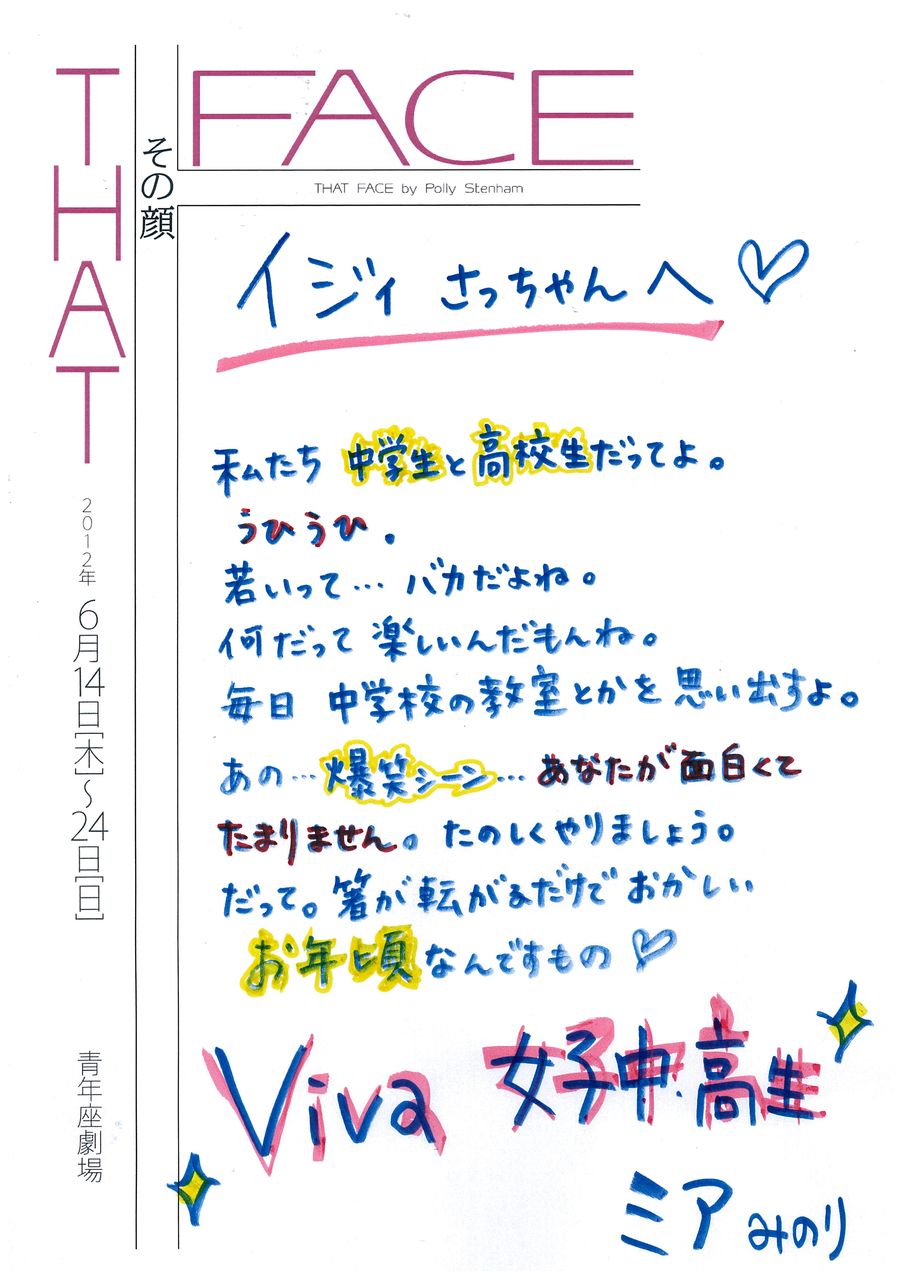 THAT FACE
その顔
THAT FACE by Polly Stenham
イジィ さっちゃんへ♡
私たち 中学生と高校生だってよ。
うひうひ。
若いって… バカだよね。
何だって 楽しいんだもんね。
毎日 中学校の教室とかを思い出すよ。
あの…爆笑シーン… あなたが面白くて
たまりません。たのしくやりましょう。
だって。箸が転がるだけで おかしい
お年頃なんですもの♡
Viva 女子中・高生
ミア みのり
2012年 6月14日[木]〜24日[日]
青年座劇場